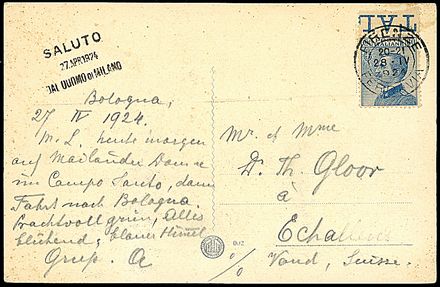 SALUTO
27.APR.1924
DAL DUOMO DI MILANO
TAL
FIRENZE
20-21
28 · IV
1924
FERROVIA
Bologna,
27 IV 1924.
M. L. heute morgen
auf Mailänder Dom u
im Campo Santo, dann
Fahrt nach Bologna.
Prachtvoll grün, Alles
blühend, blauer Himmel
Grup. A
Mr et Mme
Dr. Th. Gloor
à
Echallens
Vaud, Suisse.